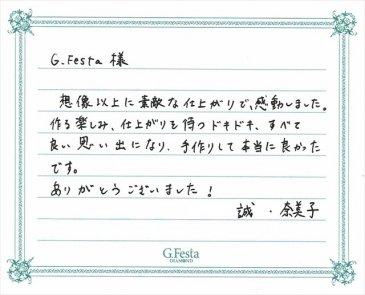 G.Festa 様
想像以上に素敵な仕上がりで、感動しました。
作る楽しみ、仕上がりを待つドキドキ、すべて
良い思い出になり、手作りして本当に良かった
です。
ありがとうございました！
誠・奈美子
G.Festa
DIAMOND